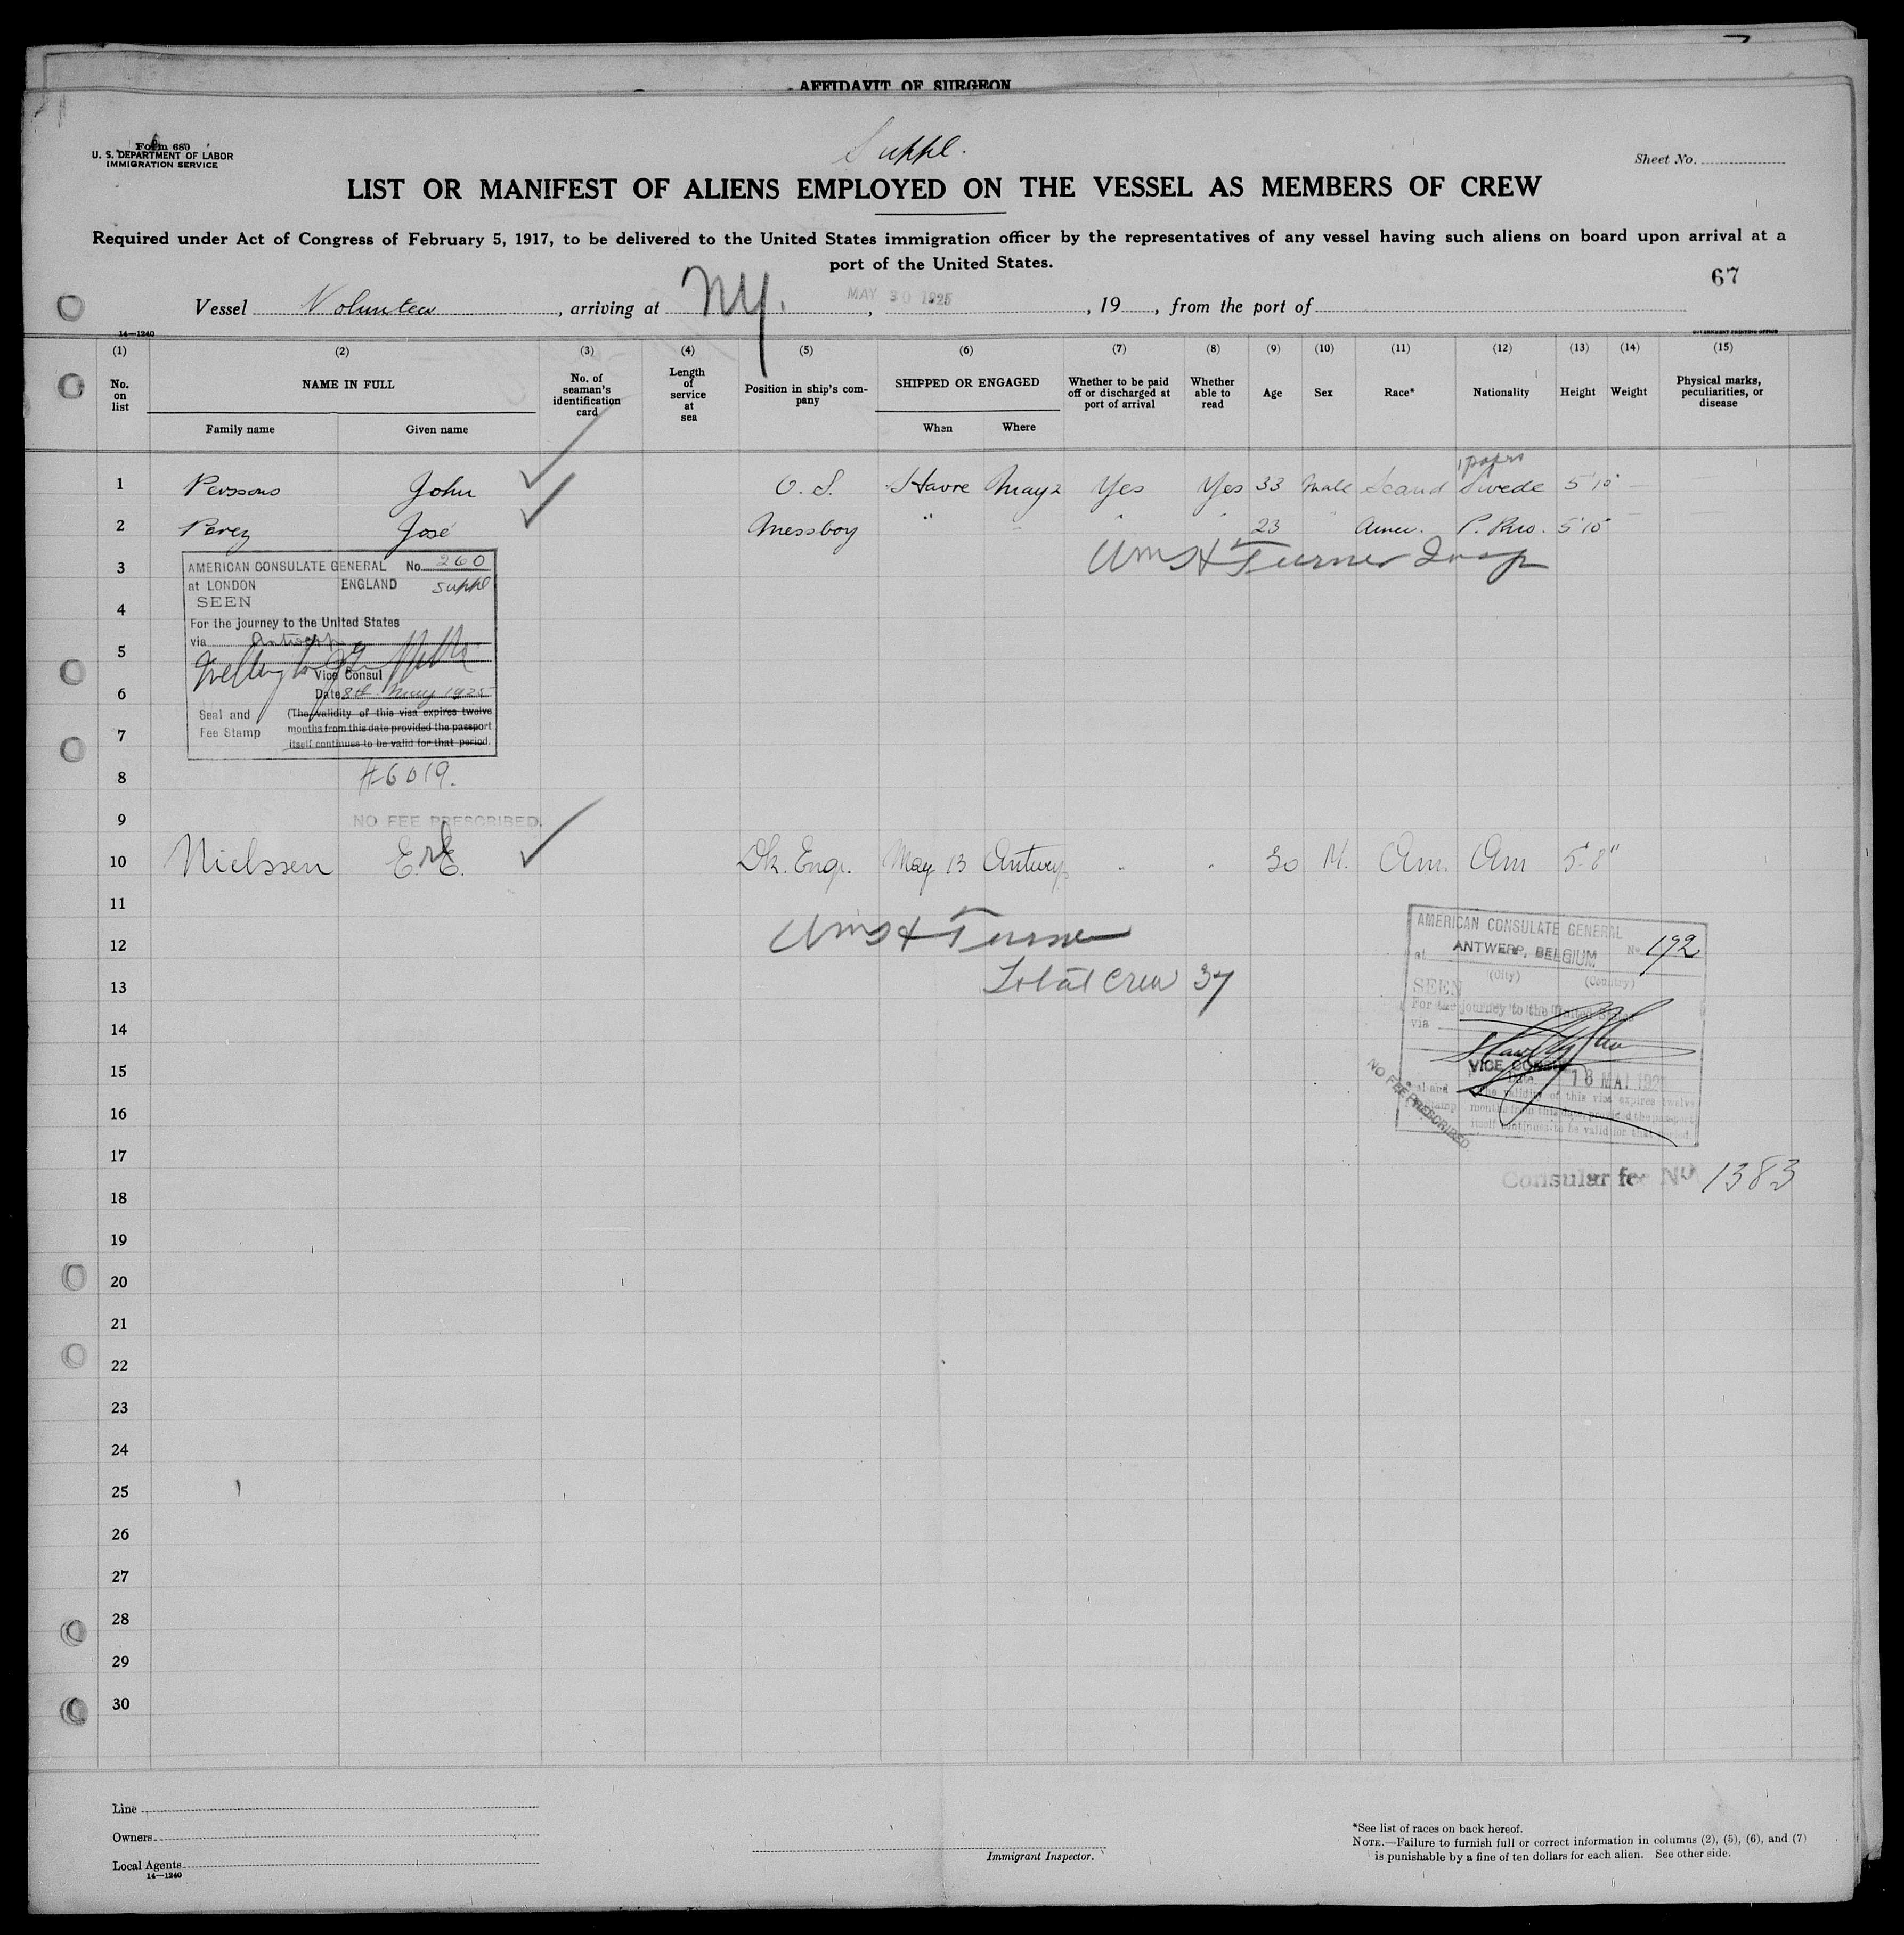 AFFIDAVIT OF SURGEON
Form 680
U. S. DEPARTMENT OF LABOR
IMMIGRATION SERVICE
Suppl.
Sheet No.
LIST OR MANIFEST OF ALIENS EMPLOYED ON THE VESSEL AS MEMBERS OF CREW
Required under Act of Congress of February 5, 1917, to be delivered to the United States immigration officer by the representatives of any vessel having such aliens on board upon arrival at a
port of the United States.
67
Vessel Volunteer, arriving at N.Y., MAY 30 1925, 19, from the port of
14—1240 GOVERNMENT PRINTING OFFICE
(1) (2) (3) (4) (5) (6) (7) (8) (9) (10) (11) (12) (13) (14) (15)
No. on list
NAME IN FULL
Family name Given name
No. of seaman's identification card
Length of service at sea
Position in ship's company
SHIPPED OR ENGAGED
When Where
Whether to be paid off or discharged at port of arrival
Whether able to read
Age
Sex
Race*
Nationality
Height
Weight
Physical marks, peculiarities, or disease
1 papers
1 Perssons John O. S. Havre May 2 Yes Yes 33 Male Scand Swede 5'10"
2 Perez José Messboy " " " " 23 " Amer. P. Rico. 5'10"
Wm H Turner Insp
3
4
5
6
7
8
9
AMERICAN CONSULATE GENERAL No. 260
at LONDON ENGLAND suppl
SEEN
For the journey to the United States
via Antwerp
Vice Consul
Date 8th May 1925
Seal and Fee Stamp
(The validity of this visa expires twelve
months from this date provided the passport
itself continues to be valid for that period.
#6019.
NO FEE PRESCRIBED.
10 Nielssen E. E. Dk. Engr. May 13 Antwerp " " 30 M. Am. Am 5'8"
11
12 Wm H Turner
13 Total crew 37
14
15
16
17
18
AMERICAN CONSULATE GENERAL
at ANTWERP, BELGIUM No. 192
(City) (Country)
SEEN
For the journey to the United States
via
VICE CONSUL
Date 18 MAI 192
Seal and Stamp
The validity of this visa expires twelve
months from this date, provided the passport
itself continues to be valid for that period.
NO FEE PRESCRIBED
Consular fee No 1383
19
20
21
22
23
24
25
26
27
28
29
30
Line
Owners
Local Agents
14—1240
Immigrant Inspector.
*See list of races on back hereof.
NOTE.—Failure to furnish full or correct information in columns (2), (5), (6), and (7)
is punishable by a fine of ten dollars for each alien. See other side.